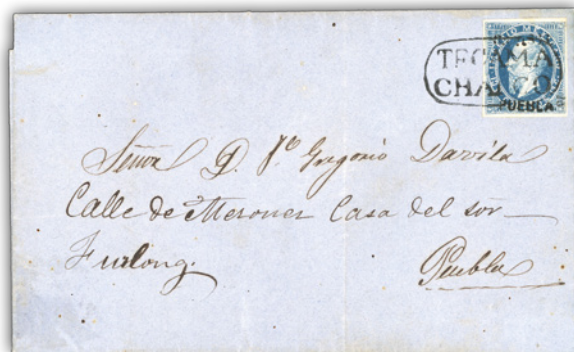 TECAMA
CHALCO
PUEBLA
Señor D. J^e Gregorio Davila
Calle de Mesones Casa del sor
Furlong.
Puebla